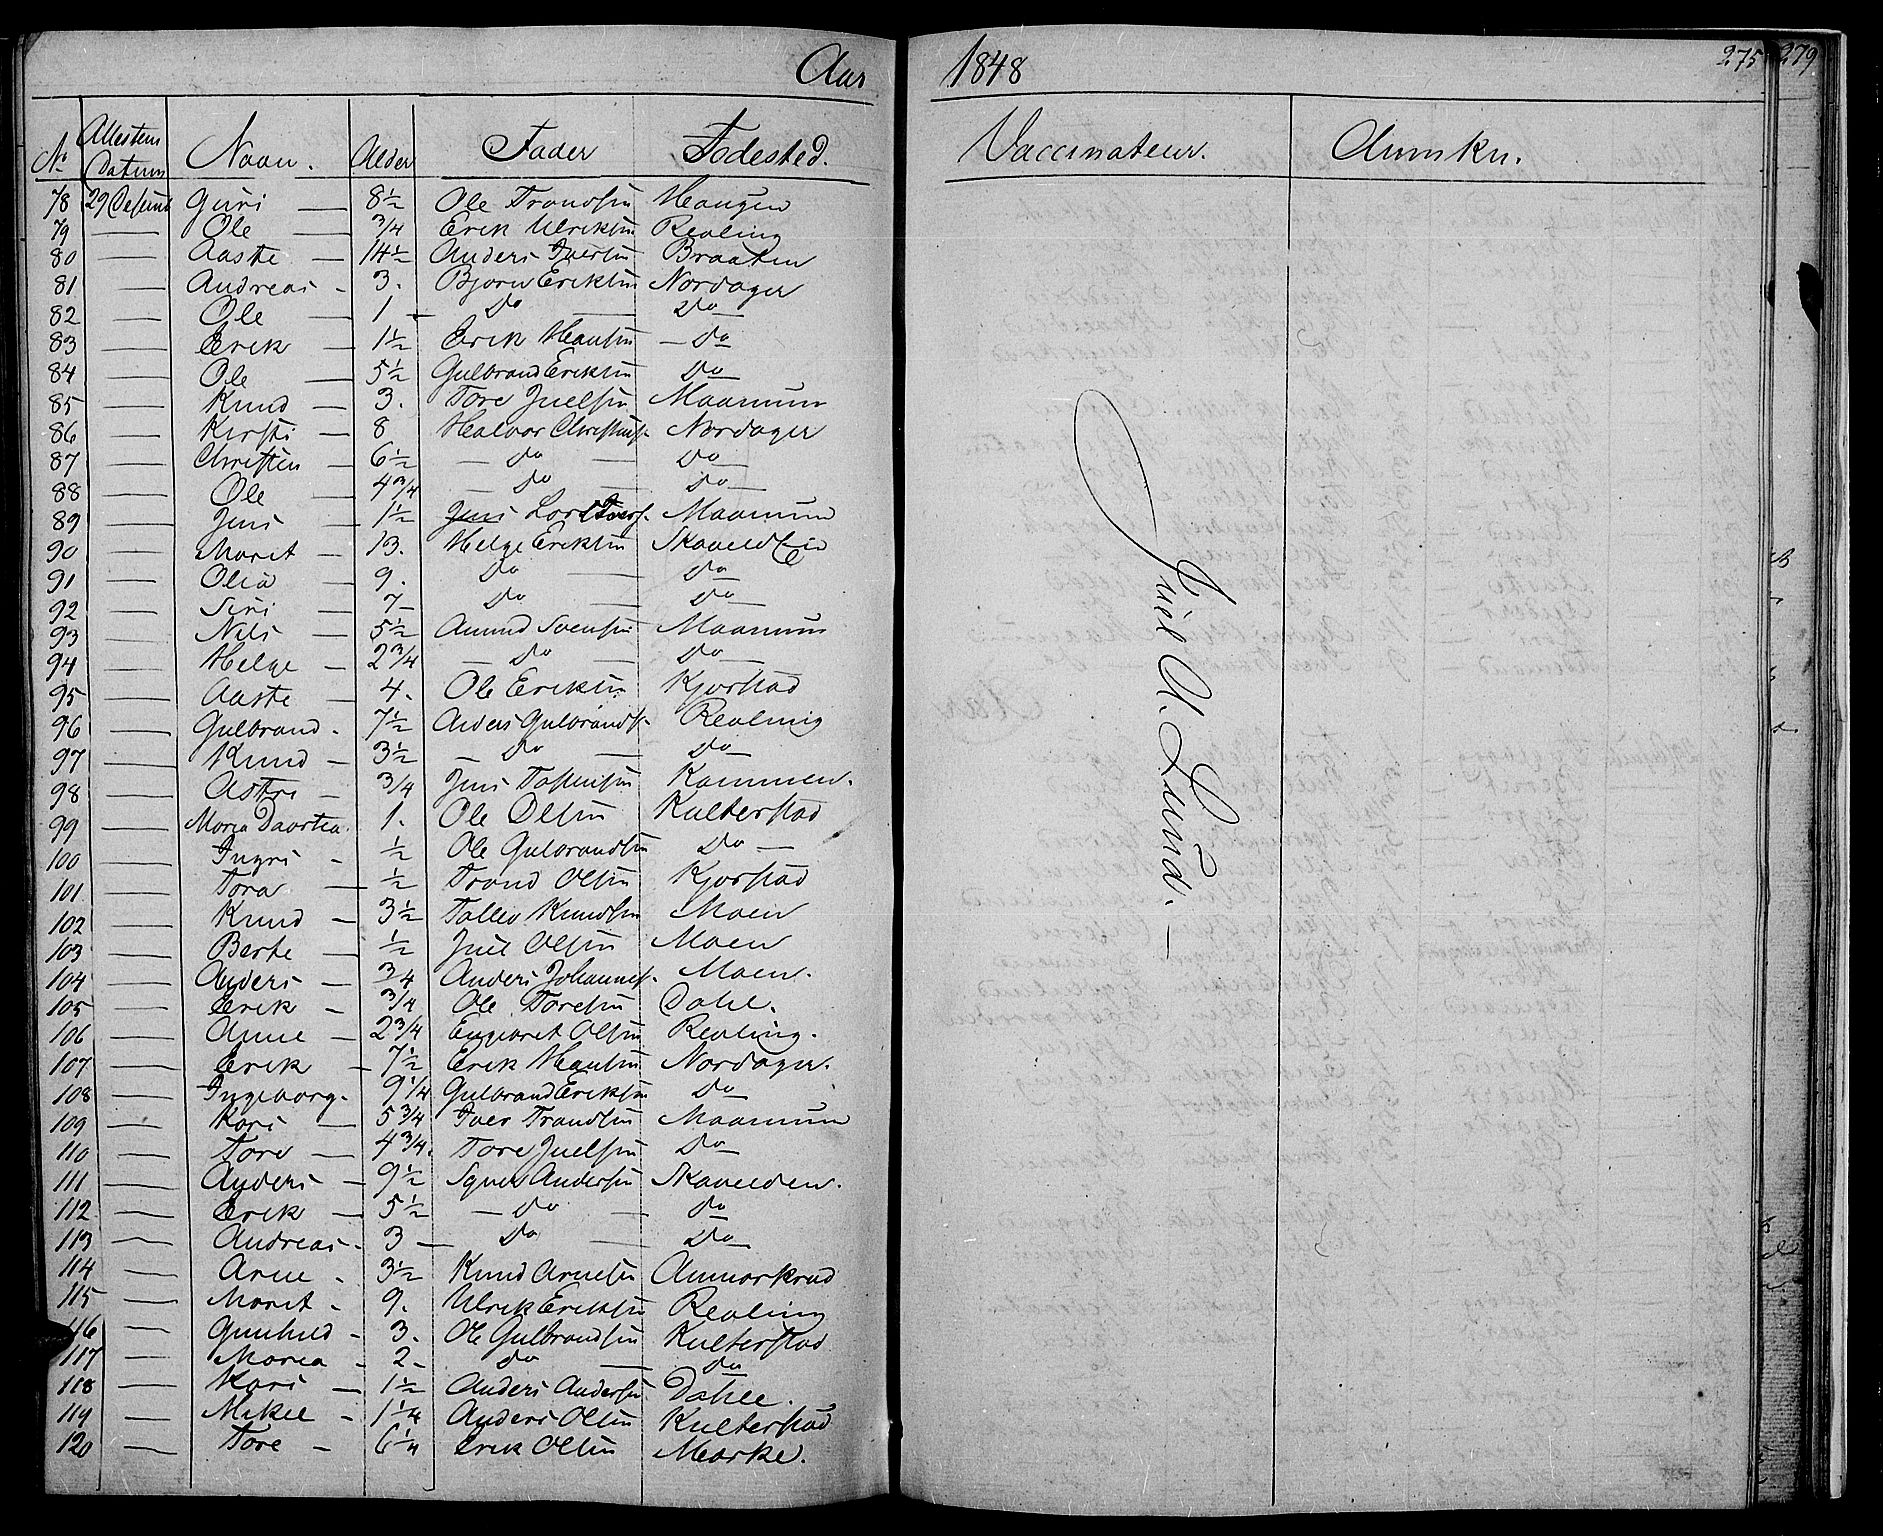 Aar 1848 275 279
No Attestens Datum Navn. Alder Fader Fødested. Vaccinateur. Anmkn.
78 29 Guri — 8½ Ole Trondsen Haugen
79 — Ole — 3/4 Erik Ulriksen Revling
80 — Aaste — 14½ Anders Iversen Braaten
81 — Andreas - 3. Bjørn Eriksen Nordager
82 — Ole — 1 - Do — Do —
83 — Erik — 1½ Erik Hansen — Do
84 — Ole — 5½ Gulbrand Eriksen Do —
85 — Knud — 3. Tore Juelsen Maamum
86 — Kirsti - 8 Halvor Christens. Nordager
87 — Christen — 6½ — Do — Do —
88 — Ole — 4 3/4 — Do — Do —
89 — Jens — 1½ Maamum
90 — Marit — 13. Helge Eriksen
91 — Olia — 9. Do — Do —
92 — Siri — 7- Do — Do —
93 — Nils — 5½ Amund Svensen Maamum
94 — Helge - 2 3/4 — Do — Do —
95 — Aaste - 4. Ole Eriksen Kjorstad
96 — Gulbrand. 7½ Anders Gulbrands. Revling
97 — Knud — 3½ — Do — Do —
98 — Astri — 3/4 Jens Kammen.
99 — Maria 1. Ole Olsen Kulterstad
100 — Ingri - ½ Ole Gulbrandsen Do —
101 — Tora — ½ Trond Olsen Kjorstad
102 — Knud - 3½ Tollev Knudsen Moen
103 — Berte — ½ Juel Olsen Moen
104 — Anders - 3/4 Anders Johanness. Moen.
105 — Erik - 3/4 Ole Toresen Dahl.
106 — Anne - 2 3/4 Engebret Olsen Revling.
107 — Erik - 7½ Erik Hansen Nordager.
108 — Ingeborg. 9 1/4 Gulbrand Eriksen Do —
109 — Kari — 5 3/4 Iver Trondsen Maamum
110 — Tore — 4 3/4. Tore Juelsen Do —
111 — Anders - 9½ Syver Andersen Skavelden.
112 — Erik — 5½ — Do — Do
113 — Andreas - 3 — Do — Do
114 — Arne - 3½ Knud Arnesen
115 — Marit - 9. Ulrik Eriksen Revling
116 — Gunhild - 3. Ole Gulbrandsen Kulterstad
117 — Maria - 2- Do — Do
118 — Kari — 1½ Anders Andersen Dahle.
119 — Mikel - 1 1/4 Anders Olsen Kulterstad
120 — Tore - 6 1/4 Erik Olsen Marke.
Juel A. Lund. —